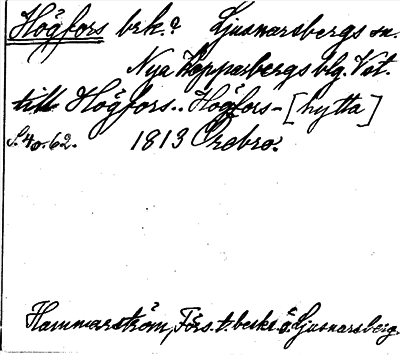 Högfors brk.? Ljusnarsbergs sn.
Nya Kopparbergs blg. Vet.
till Högfors.. Högfors-[hytta]
S. 40.62. 1813 Örebro.
Hammarström, Förs. t. beskr. ö. Ljusnarsberg.